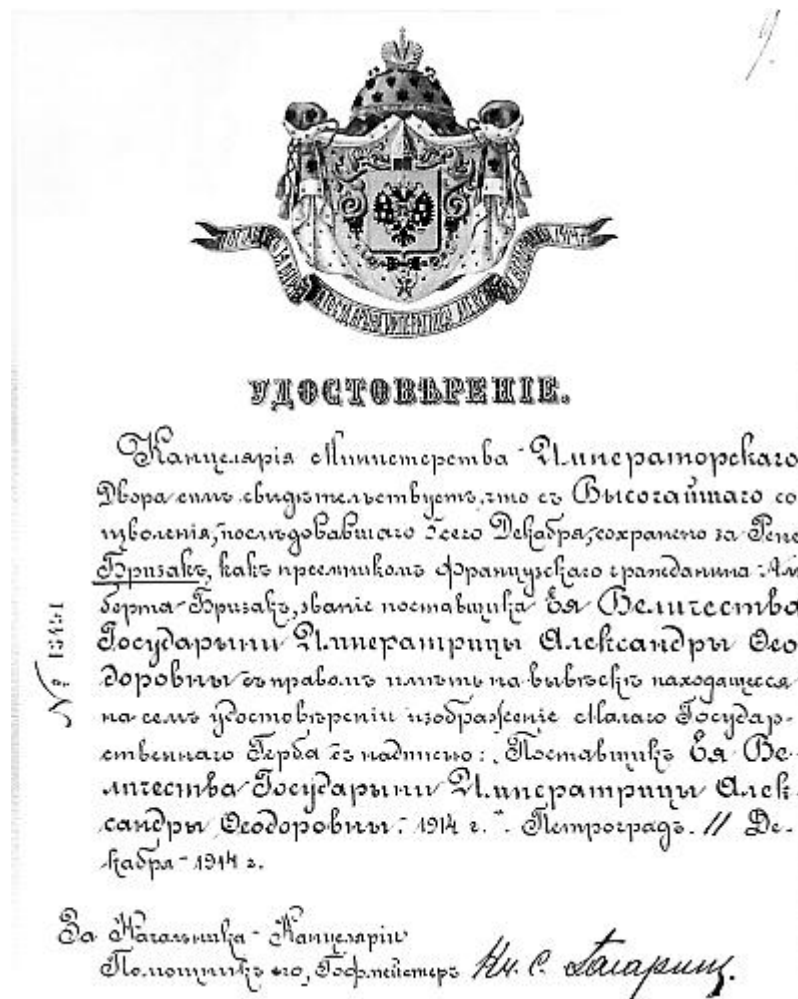 УДОСТОВѢРЕНІЕ.
Канцелярія Министерства Императорскаго
Двора симъ свидѣтельствуетъ, что съ Высочайшаго со
изволенія, послѣдовавшаго Декабря, сохранено за Рене
Бризакъ, какъ преемникомъ французскаго гражданина Ал
берта Бризакъ, званіе поставщика Ея Величества
Государыни Императрицы Александры Ѳео
доровны съ правомъ имѣть на вывѣскѣ находящееся
на семъ удостовѣреніи изображеніе Малаго Государ-
ственнаго Герба съ надписью: „Поставщикъ Ея Ве-
личества Государыни Императрицы Алек
сандры Ѳеодоровны. 1914 г.“. Петроградъ. 11 Де-
кабря 1914 г.
За Начальника Канцеляріи
Помощникъ его, Гофмейстеръ Кн. С. Гагаринъ.